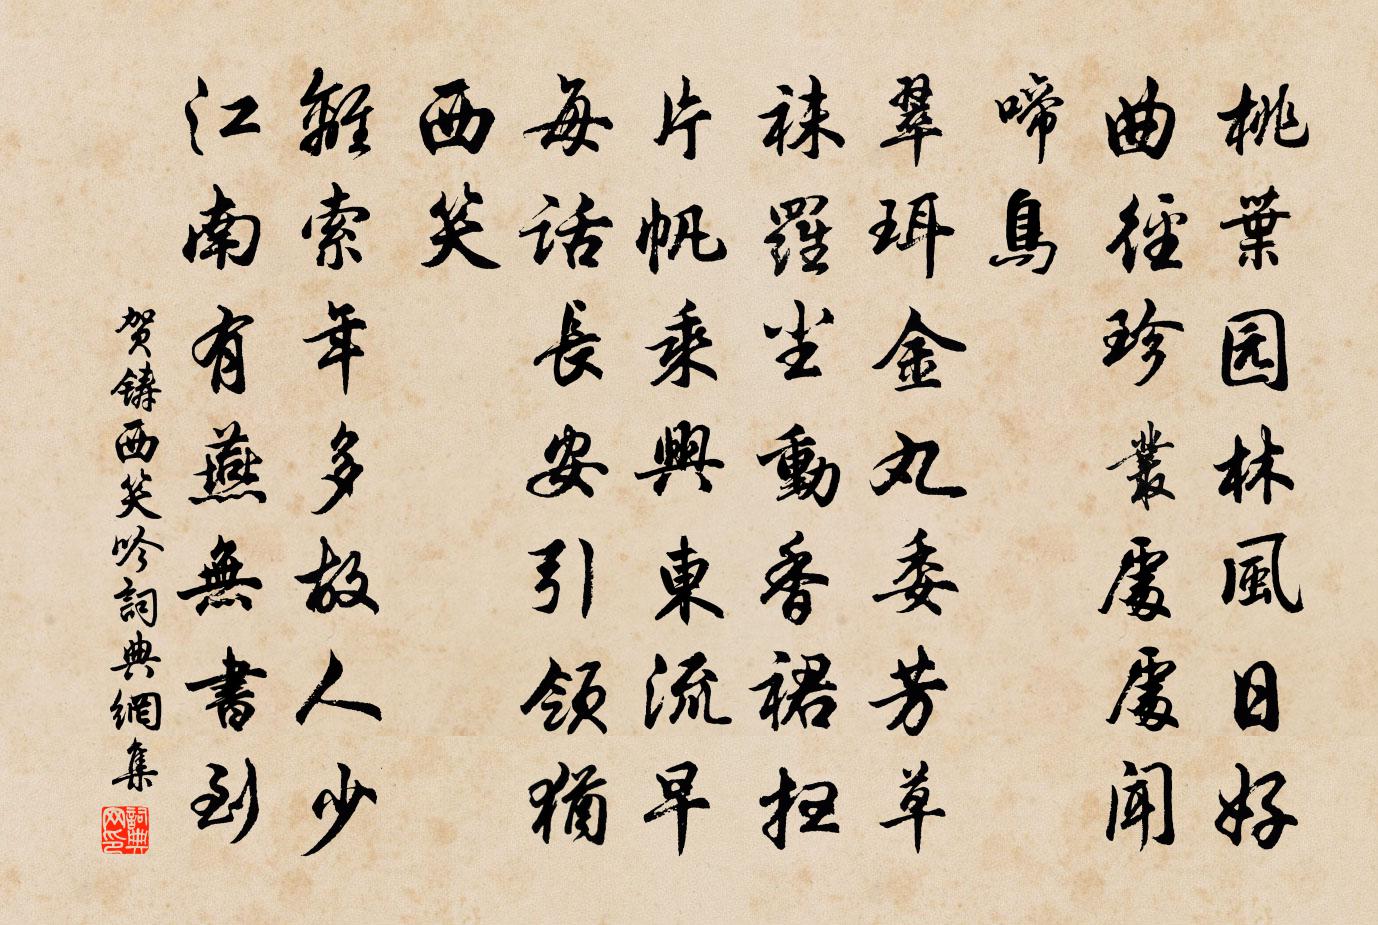 桃葉园林風日好
曲徑珍叢處處聞
啼鳥
翠珥金丸委芳草
袜羅尘動香裙扫
片帆乘興東流早
每話長安引領猶
西笑
離索年多故人少
江南有燕無書到
贺鑄西笑吟詞典網集
詞典
网印